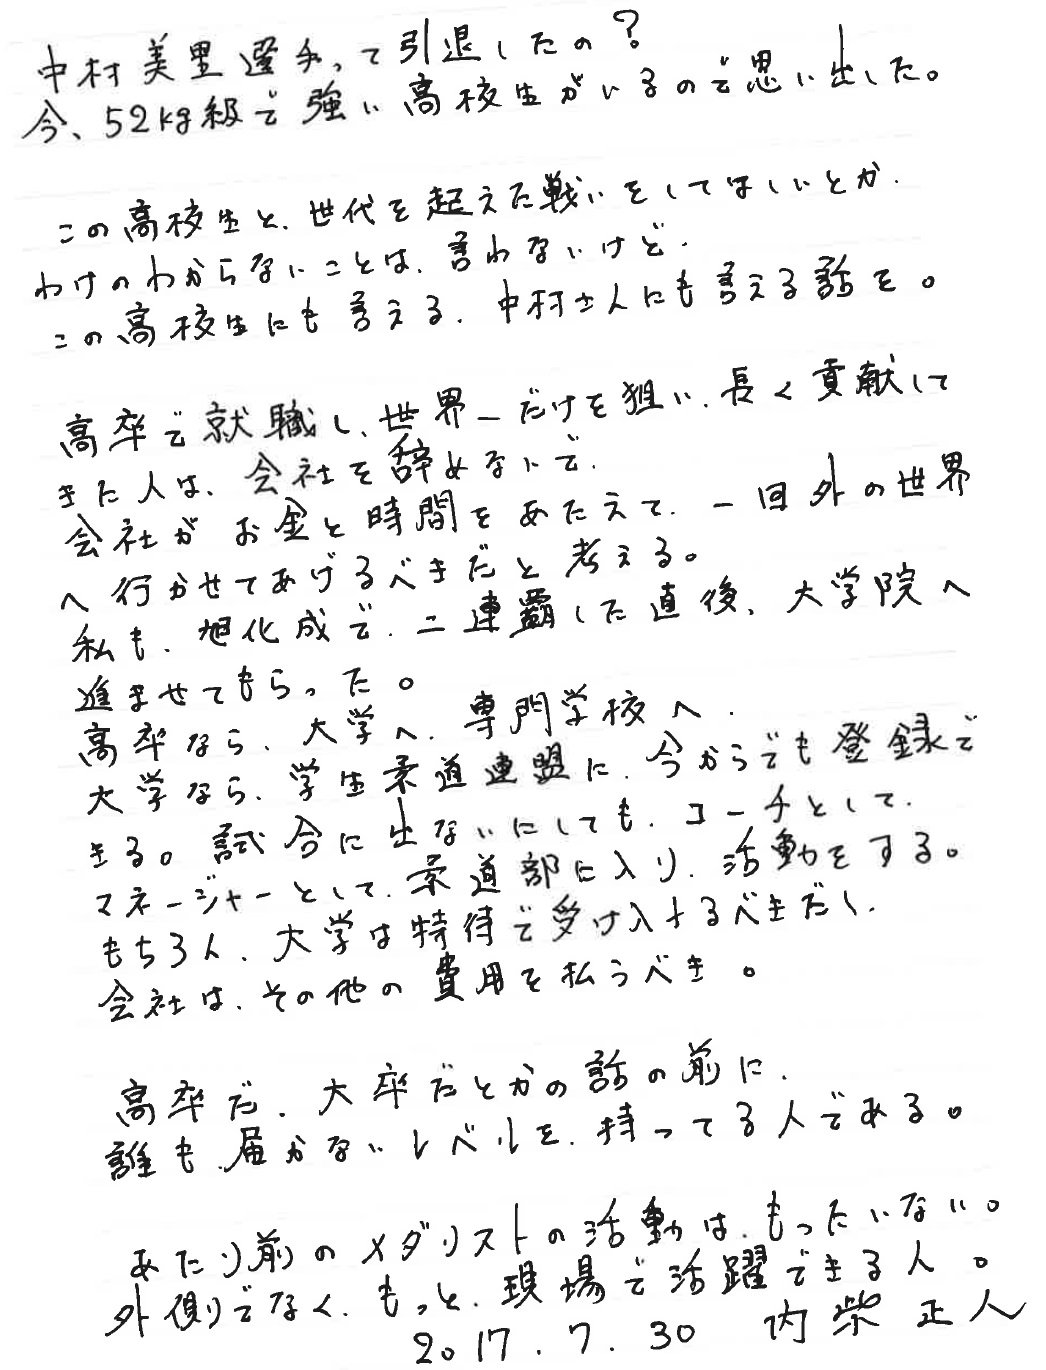 中村美里選手って引退したの？
今、52kg級で強い高校生がいるので思い出した。
この高校生と、世代を起えた戦いをしてほしいとか、
わけのわからないことは、言わないけど、
この高校生にも言える、中村さんにも言える話を。
高卒で就職し、世界一だけを狙い、長く貢献して
きた人は、会社を辞めないで、
会社がお金と時間をあたえて、一回外の世界
へ行かせてあげるべきだと考える。
私も、旭化成で、二連覇した直後、大学院へ
進ませてもらった。
高卒なら、大学へ、専門学校へ、
大学なら、学生柔道連盟に、今からでも登録で
きる。試合に出ないにしても、コーチとして、
マネージャーとして、柔道部に入り、活動をする。
もちろん、大学は特待で受け入れるべきだし、
会社は、その他の費用を払うべき。
高卒だ、大卒だとかの話の前に、
誰も届かないレベルを、持ってる人である。
あたり前のメダリストの活動は、もったいない。
外側でなく、もっと、現場で活躍できる人。
2017.7.30 内柴正人